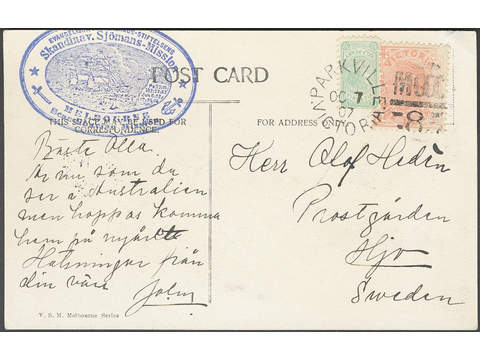 EVANGELISKA FOSTERLANDS-STIFTELSENS
Skandinav. Sjömans-Mission
MELBOURNE
POST CARD
THIS SPACE MAY BE USED FOR
CORRESPONDENCE
FOR ADDRESS
PARKVILLE
OC 7
07
VICTORIA
VICTORIA
Bäste Olla.
är nu som du
ser i Australien
men hoppas komma
hem på nyåret
Helsningar från
din vän
John
Herr Olof Hedén
Prostgården
Hjo
Sweden
V. S. M. Melbourne Series